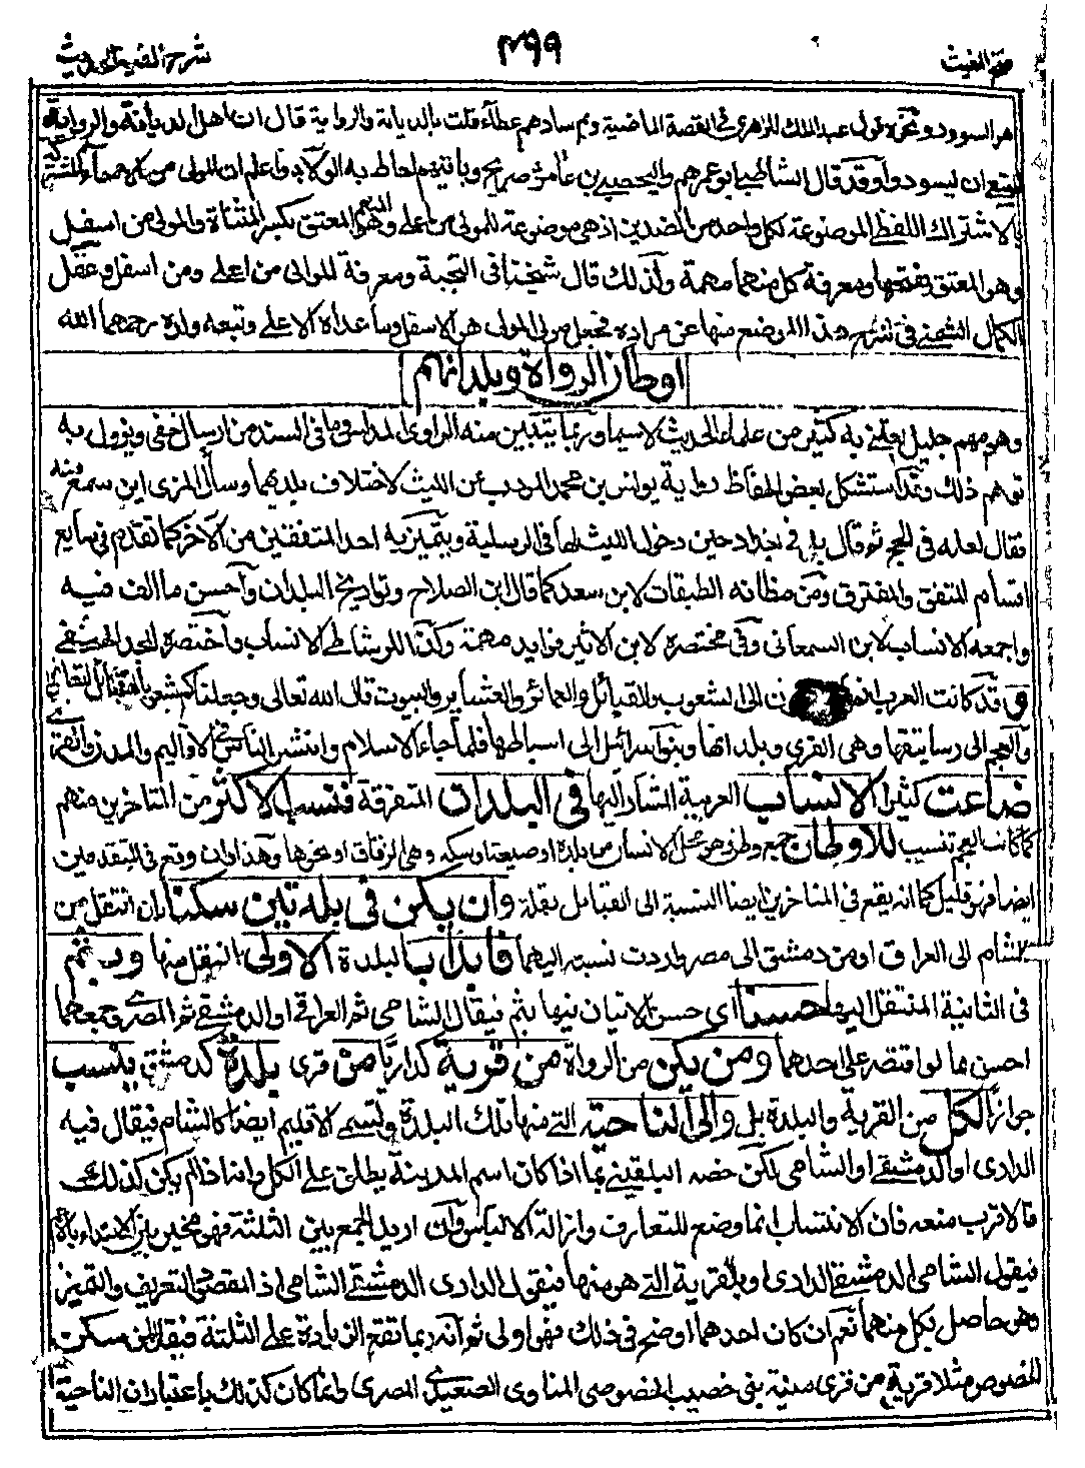 فتح المغيث ٤٩٩ شرح الفية الحديث
هم السوود ونحوه قول عبد الملك للزهري في القصة الماضية وبم سادهم عطاء قلت بالديانة والرواية قال ان اهل الديانة والرواية
ينبغي ان يسودوا وقد قال الشاطبي ابو عمرهم واليحصبي بن عامر صريح وباقيهم احاط به الولا واعلم ان المولى من اسماء المشتركة
بالاشتراك اللفظي الموضوعة لكل واحد من الضدين اذ هي موضوعة للمولى من اعلى وهو المنعم المعتق بكسر المثناة والمولى من اسفل
وهو المعتق بفتحها ومعرفة كل منهما مهمة ولذلك قال شيخنا في النخبة ومعرفة الموالى من اعلى ومن اسفل وغفل
الكمال الشمني في شرح هذا الموضع منها عن مراده فجعل مولى المولى هو الاسفل وما عداه الاعلى وتبعه ولده رحمهما الله
اوطان الرواة وبلدانهم
وهو مهم جليل يعتني به كثير من علماء الحديث لاسيما وربما يتبين منه الراوي المدلس وما في السند من ارسال خفي ويزول به
توهم ذلك وقد استشكل بعض الحفاظ رواية يونس بن محمد المودب عن الليث لاختلاف بلديهما وسأل المزي اين سمع منه
فقال لعله في الحج ثم قال بل في بغداد حين دخول الليث لها في الرسلية ويتميز به احد المتفقين من الآخر كما تقدم في سابع
اقسام المتفق والمفترق ومن مظانه الطبقات لابن سعد كما قال ابن الصلاح وتواريخ البلدان واحسن ما الف فيه
واجمعه الانساب لابن السمعاني وفي مختصره لابن الاثير فوايد مهمة وكذا للرشاطي الانساب واختصره المجد الحنفي
وقد كانت العرب انما ن الى الشعوب والقبائل والعمائر والعشاير والبيوت قال الله تعالى وجعلناكم شعوبا وقبائل لتعارفوا
والعجم الى رساتيقها وهي القرى وبلدانها وبنو اسرائل الى اسباطها فلما جاء الاسلام وانتشر الناس في الاقاليم والمدن والقرى
ضاعت كثيرا الانساب العربية المشار اليها في البلدان المتفرقة فنسب الاكثر من المتاخرين منهم
كما كانت العجم تنسب للاوطان جمع وطن وهو محل الانسان من بلدة او ضيعة او سكة وهي الزقاق او نحوها وهذا وان وقع في المتقدمين
ايضا فهو قليل كما انه يقع في المتاخرين ايضا النسبة الى القبائل بقلة وان يكن في بلدتين سكنا بان انتقل من
الشام الى العراق او من دمشق الى مصر واردت نسبته اليهما فابدأ بالبلدة الاولى المنتقل منها وبثم
في الثانية المنتقل اليها حسنا اى حسن الاتيان فيها بثم فيقال الشامى ثم العراقى او الدمشقى ثم المصرى وجمعهما
احسن مما لو اقتصر على احدهما ومن يكن من الرواة من قرية كداريا من قرى بلدة كدمشق ينسب
جوازا لكل من القرية والبلدة بل والى الناحية التى منها تلك البلدة وتسمى الاقليم ايضا كالشام فيقال فيه
الدارى او الدمشقى او الشامى لكن خصه البلقينى بما اذا كان اسم المدينة يطلق على الكل وانه اذا لم يكن كذلك
فالاقرب منعه فان الانتساب انما وضع للتعارف وازالة الالتباس وان اريد الجمع بين الثلثة فهو مخير بين الابتداء بالاعم
فيقول الشامى الدمشقى الدارى او بالقرية التى هو منها فيقول الدارى الدمشقى الشامى اذ المقصود التعريف والتمييز
وهو حاصل بكل منهما نعم ان كان احدهما اوضح في ذلك فهو اولى ثم انه ربما تقع الزيادة على الثلثة فيقال لمن سكن
الخصوص مثلا قرية من قرى منية بنى خصيب الخصوصى المناوى الصعيدى المصرى وانما كان كذلك باعتبار ان الناحية